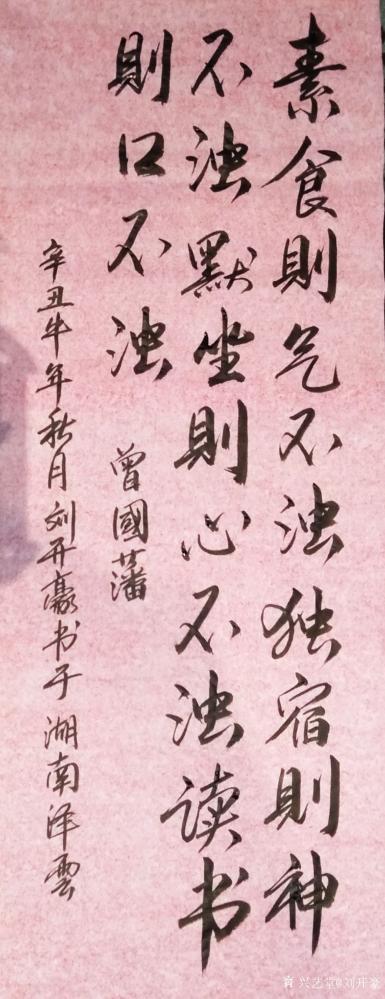 素食則气不浊独宿則神
不浊默坐則心不浊读书
則口不浊
曾國藩
辛丑牛年秋月刘开豪书于湖南泽雲
兴艺堂@刘开豪